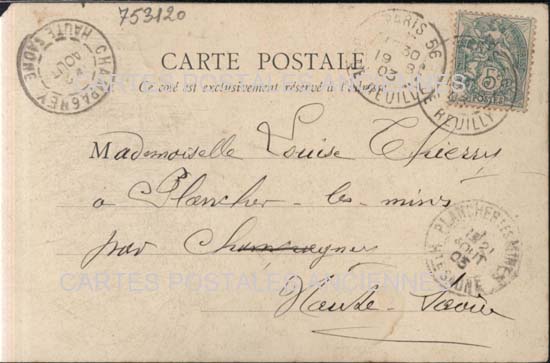 753120
CARTE POSTALE
Ce côté est exclusivement réservé à l'adresse
CHAMPAGNEY HAUTE SAÔNE
AOUT
PARIS 56
30
19
03
REUILLY
5c
POSTES
Mademoiselle Louise Thierry
à Plancher-les-mines
par Champagney
Haute-Saône
PLANCHER LES MINES
21
AOUT
03
HTE SAONE
CARTES POSTALES ANCIENNES
CARTES POSTALES ANCIENNES